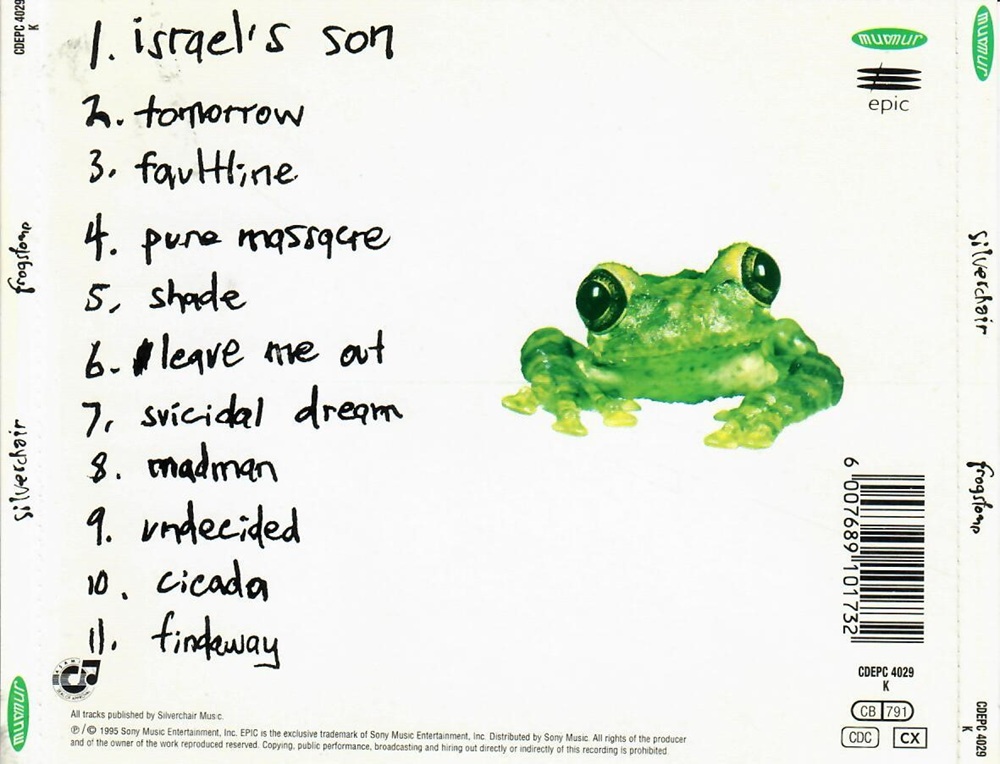 1. israel's son
2. tomorrow
3. faultline
4. pure massacre
5. shade
6. leave me out
7. suicidal dream
8. madman
9. undecided
10. cicada
11. findaway
All tracks published by Silverchair Music.
℗/© 1995 Sony Music Entertainment, Inc. EPIC is the exclusive trademark of Sony Music Entertainment, Inc. Distributed by Sony Music. All rights of the producer
and of the owner of the work reproduced reserved. Copying, public performance, broadcasting and hiring out directly or indirectly of this recording is prohibited.
murmur
epic
6 007689 101732
CDEPC 4029
K
CB 791
CDC CX
CDEPC 4029
K
frogstomp
silverchair
murmur
murmur
silverchair
frogstomp
CDEPC 4029
K